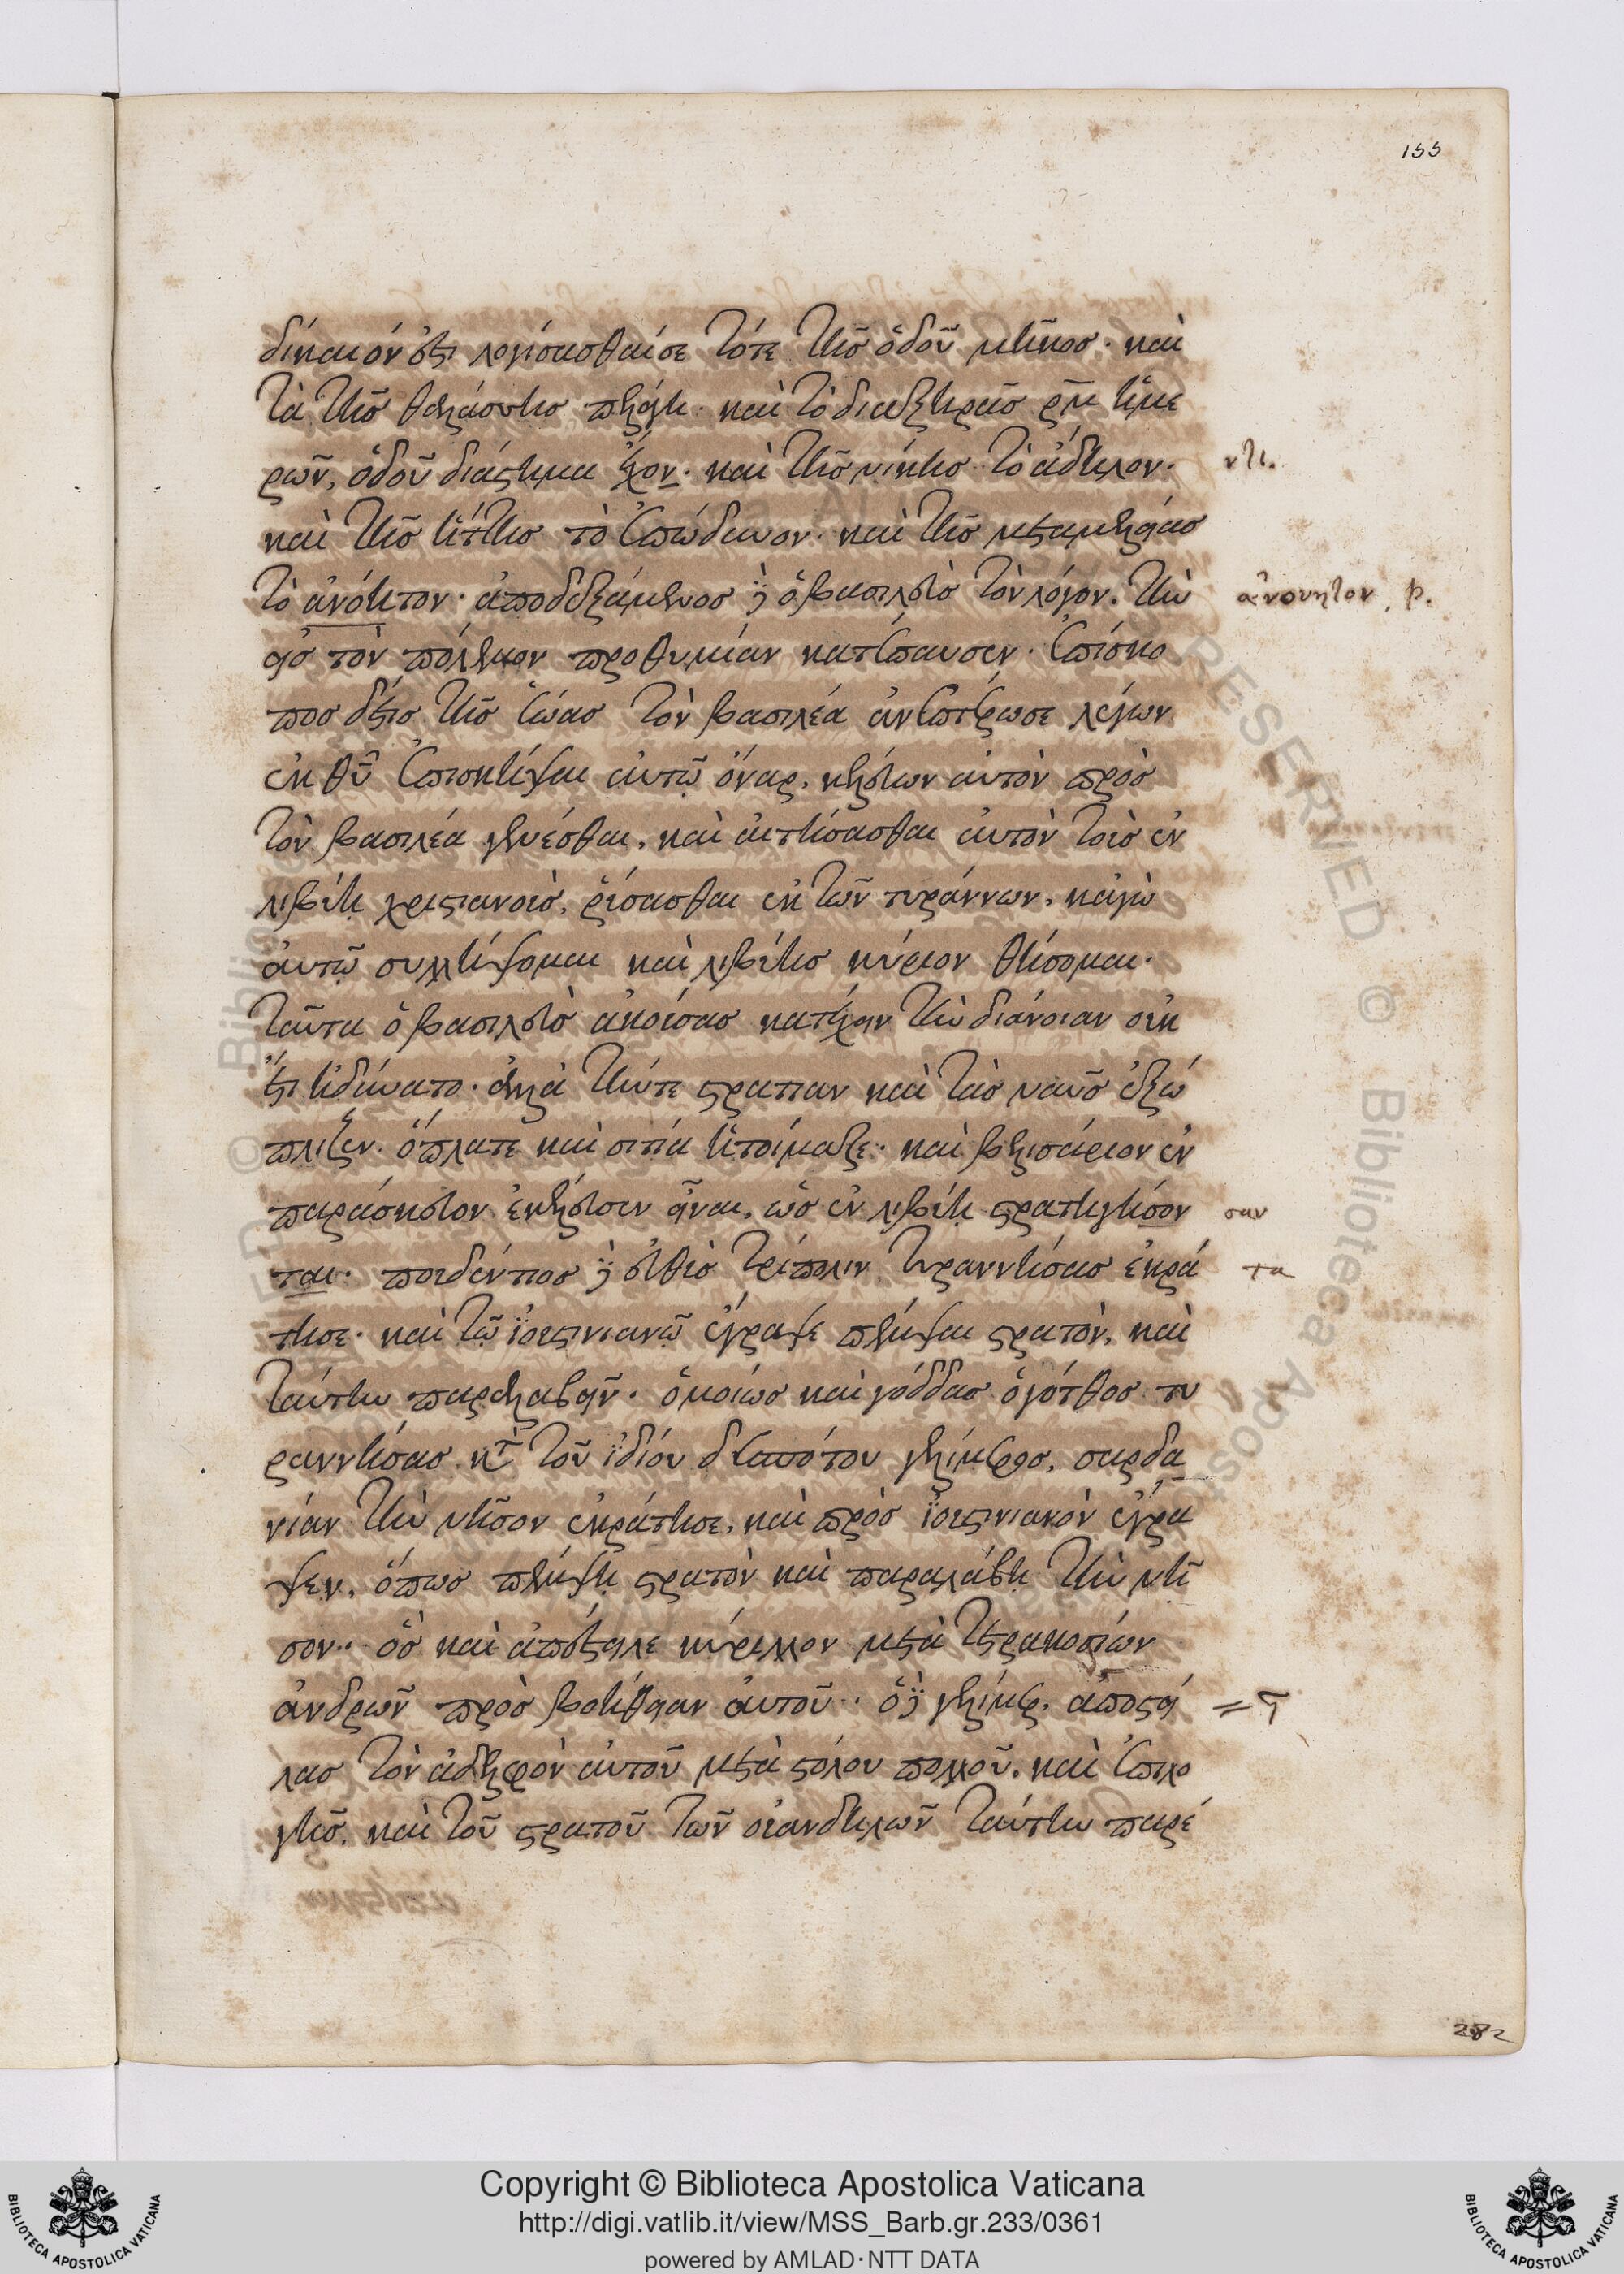 155
δίκαιόν ἐστι λογίσασθαί σε τότε τῆς ὁδοῦ μῆκος· καὶ
τὰ τῆς θαλάσσης πελάγη· καὶ τὸ διὰ ξηρᾶς ρ̅μ̅ ἡμε
ρῶν, ὁδοῦ διάστημα ἔχον· καὶ τῆς νίκης τὸ ἄδηλον·
ντι.
καὶ τῆς ἥττης τὸ ἐπώδυνον· καὶ τῆς μεταμελείας
τὸ ἀνόητον· ἀποδεξάμενος δὲ ὁ βασιλεὺς τὸν λόγον. τὴν
ἀνονητον, p.
εἰς τὸν πόλεμον προθυμίαν κατέπαυσεν· ἐπίσκο
πος δέ τις τῆς ἑώας τὸν βασιλέα ἀνεπτέρωσε λέγων
ἐκ θῦ ἐπισκῆψαι αὐτῷ ὄναρ, κελεύων αὐτὸν πρὸς
τὸν βασιλέα γενέσθαι, καὶ αἰτήσασθαι αὐτὸν τοῖς ἐν
λιβύη χριστιανοῖς, ῥύσασθαι ἐκ τῶν τυράννων. κἀγὼ
αὐτῷ συλλήψομαι καὶ λιβύης κύριον θήσομαι·
ταῦτα ὁ βασιλεὺς ἀκούσας κατέχειν τὴν διάνοιαν οὐκ
ἔτι ἠδύνατο· ἀλλὰ τήν τε στρατιαν καὶ τὰς ναῦς ἐξώ
πλιζεν· ὅπλα τε καὶ σιτία ἡτοίμαζε· καὶ βελισάριον ἐν
παρασκευῇ ἐκέλευσεν εἶναι, ὡς ἐν λιβύη στρατηγήσον
σαν
ται· πουδέντιος δὲ εὐθὺς τρίπολιν τυραννήσας ἐκρά
τα
τησε· καὶ τῷ ἰουστινιανῷ ἔγραψε πέμψαι στρατὸν, καὶ
ταύτην παραλαβεῖν· ὁμοίως καὶ γόδδας ὁ γότθος τυ
ραννήσας κτ̀ τοῦ ἰδίου δεσπότου γελίμερος, σαρδα
νίαν τὴν νῆσον ἐκράτησε, καὶ πρὸς ἰουστινιανὸν ἔγρα
ψεν, ὅπως πέμψῃ στρατὸν καὶ παραλάβῃ τὴν νῆ
σον·· ὃς καὶ ἀπέστειλε κύριλλον μετὰ τετρακοσίων
ἀνδρῶν πρὸς βοήθειαν αὐτοῦ·· ὁ δὲ γελίμερ. ἀποστεί
λας τὸν ἀδελφὸν αὐτοῦ μετὰ στόλου πολλοῦ. καὶ ἐπιλο
γῆς, καὶ τοῦ στρατοῦ τῶν οὐανδήλων ταύτην παρέ
282
Copyright © Biblioteca Apostolica Vaticana
http://digi.vatlib.it/view/MSS_Barb.gr.233/0361
powered by AMLAD·NTT DATA
BIBLIOTECA APOSTOLICA VATICANA
BIBLIOTECA APOSTOLICA VATICANA